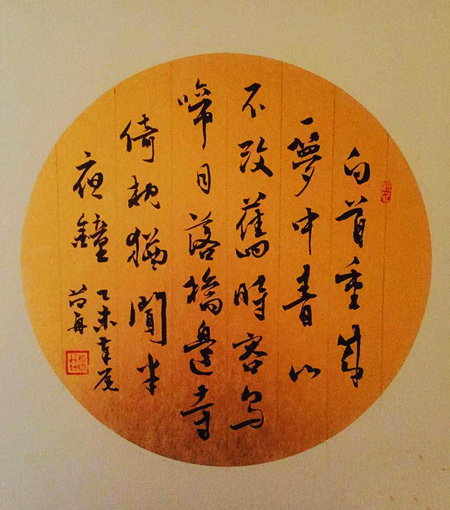 白首重來
一夢中青山
不改舊時容烏
啼月落橋邊寺
倚枕猶聞半
夜鐘
乙未年